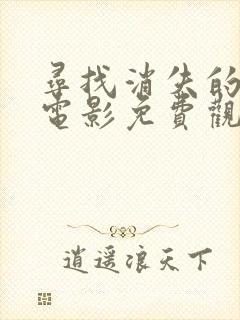 尋找消失的
電影免費觀
逍遥浪天下